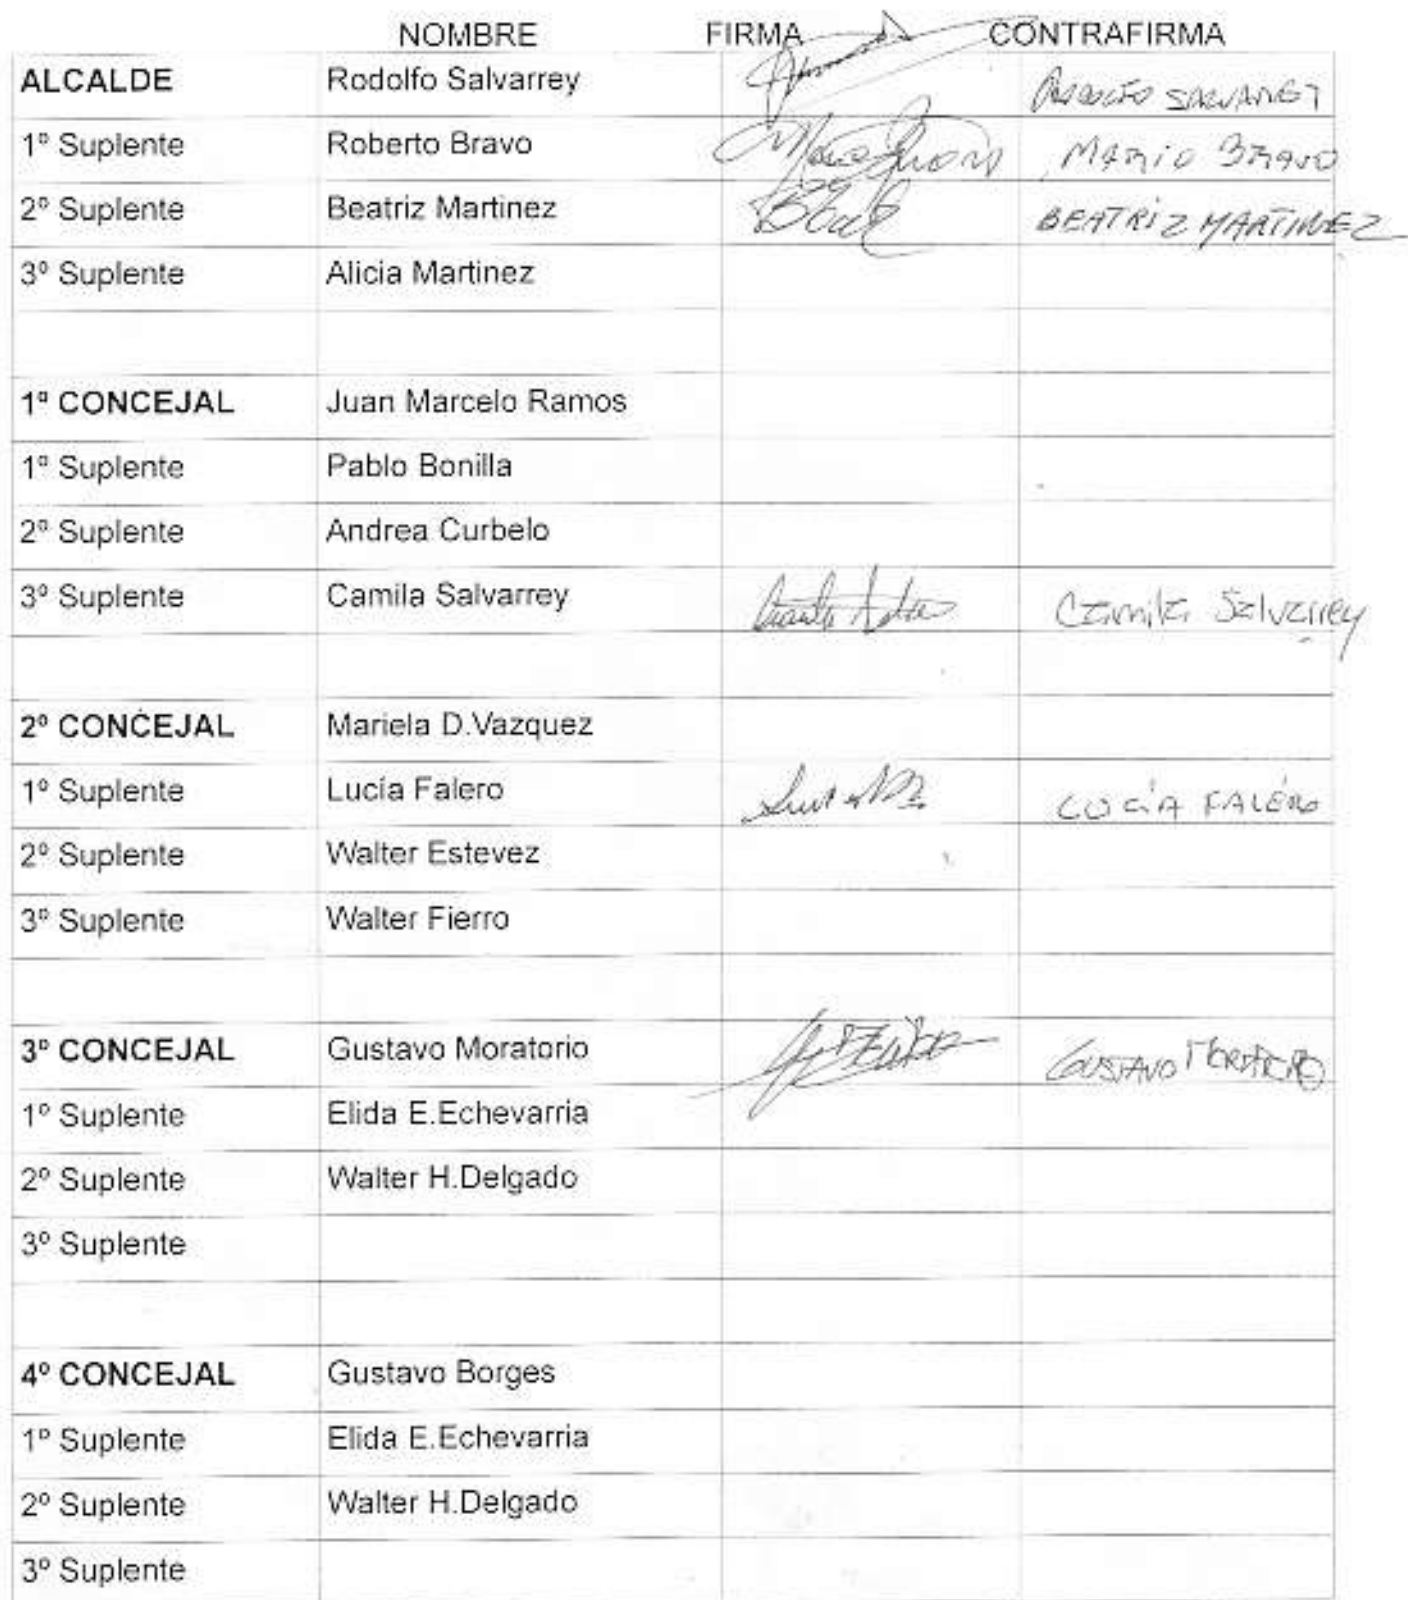 NOMBRE FIRMA CONTRAFIRMA
ALCALDE Rodolfo Salvarrey RODOLFO SALVARREY
1º Suplente Roberto Bravo MARIO BRAVO
2º Suplente Beatriz Martinez BEATRIZ MARTINEZ
3º Suplente Alicia Martinez
1º CONCEJAL Juan Marcelo Ramos
1º Suplente Pablo Bonilla
2º Suplente Andrea Curbelo
3º Suplente Camila Salvarrey Camila Salvarrey
2º CONCEJAL Mariela D.Vazquez
1º Suplente Lucía Falero LUCÍA FALERO
2º Suplente Walter Estevez
3º Suplente Walter Fierro
3º CONCEJAL Gustavo Moratorio GUSTAVO MORATORIO
1º Suplente Elida E.Echevarria
2º Suplente Walter H.Delgado
3º Suplente
4º CONCEJAL Gustavo Borges
1º Suplente Elida E.Echevarria
2º Suplente Walter H.Delgado
3º Suplente